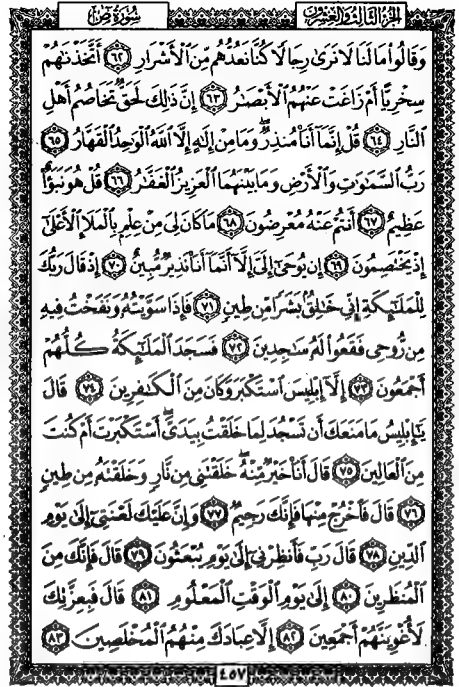 سُورَةُ صٓ
الجزء الثالث والعشرون
وَقَالُوا۟ مَا لَنَا لَا نَرَىٰ رِجَالًا كُنَّا نَعُدُّهُم مِّنَ ٱلْأَشْرَارِ ٦٢ أَتَّخَذْنَٰهُمْ
سِخْرِيًّا أَمْ زَاغَتْ عَنْهُمُ ٱلْأَبْصَٰرُ ٦٣ إِنَّ ذَٰلِكَ لَحَقٌّ تَخَاصُمُ أَهْلِ
ٱلنَّارِ ٦٤ قُلْ إِنَّمَآ أَنَا۠ مُنذِرٌ ۖ وَمَا مِنْ إِلَٰهٍ إِلَّا ٱللَّهُ ٱلْوَٰحِدُ ٱلْقَهَّارُ ٦٥
رَبُّ ٱلسَّمَٰوَٰتِ وَٱلْأَرْضِ وَمَا بَيْنَهُمَا ٱلْعَزِيزُ ٱلْغَفَّٰرُ ٦٦ قُلْ هُوَ نَبَؤٌا۟
عَظِيمٌ ٦٧ أَنتُمْ عَنْهُ مُعْرِضُونَ ٦٨ مَا كَانَ لِىَ مِنْ عِلْمٍۭ بِٱلْمَلَإِ ٱلْأَعْلَىٰٓ
إِذْ يَخْتَصِمُونَ ٦٩ إِن يُوحَىٰٓ إِلَىَّ إِلَّآ أَنَّمَآ أَنَا۠ نَذِيرٌ مُّبِينٌ ٧٠ إِذْ قَالَ رَبُّكَ
لِلْمَلَٰٓئِكَةِ إِنِّى خَٰلِقٌۢ بَشَرًا مِّن طِينٍ ٧١ فَإِذَا سَوَّيْتُهُۥ وَنَفَخْتُ فِيهِ
مِن رُّوحِى فَقَعُوا۟ لَهُۥ سَٰجِدِينَ ٧٢ فَسَجَدَ ٱلْمَلَٰٓئِكَةُ كُلُّهُمْ
أَجْمَعُونَ ٧٣ إِلَّآ إِبْلِيسَ ٱسْتَكْبَرَ وَكَانَ مِنَ ٱلْكَٰفِرِينَ ٧٤ قَالَ
يَٰٓإِبْلِيسُ مَا مَنَعَكَ أَن تَسْجُدَ لِمَا خَلَقْتُ بِيَدَىَّ ۖ أَسْتَكْبَرْتَ أَمْ كُنتَ
مِنَ ٱلْعَالِينَ ٧٥ قَالَ أَنَا۠ خَيْرٌ مِّنْهُ ۖ خَلَقْتَنِى مِن نَّارٍ وَخَلَقْتَهُۥ مِن طِينٍ
٧٦ قَالَ فَٱخْرُجْ مِنْهَا فَإِنَّكَ رَجِيمٌ ٧٧ وَإِنَّ عَلَيْكَ لَعْنَتِىٓ إِلَىٰ يَوْمِ
ٱلدِّينِ ٧٨ قَالَ رَبِّ فَأَنظِرْنِىٓ إِلَىٰ يَوْمِ يُبْعَثُونَ ٧٩ قَالَ فَإِنَّكَ مِنَ
ٱلْمُنظَرِينَ ٨٠ إِلَىٰ يَوْمِ ٱلْوَقْتِ ٱلْمَعْلُومِ ٨١ قَالَ فَبِعِزَّتِكَ
لَأُغْوِيَنَّهُمْ أَجْمَعِينَ ٨٢ إِلَّا عِبَادَكَ مِنْهُمُ ٱلْمُخْلَصِينَ ٨٣
٤٥٧